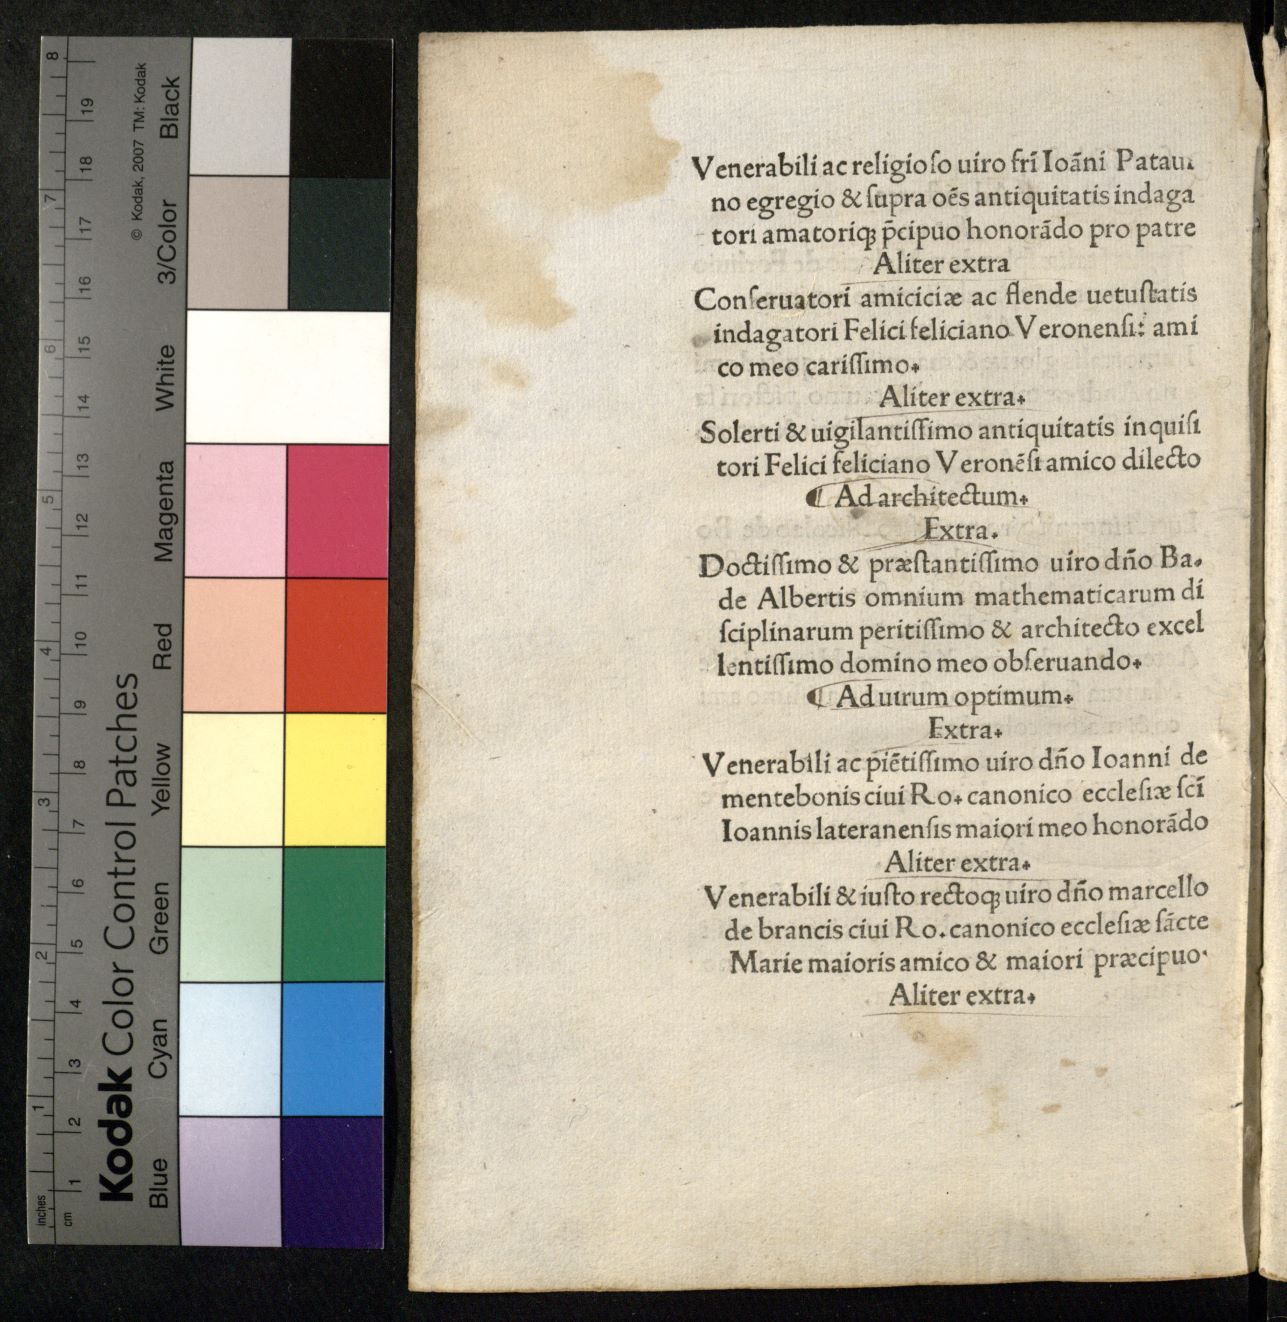 Venerabili ac religioſo uiro fr̄i Ioāni Pataui
no egregio & ſupra oēs antiquitatis indaga
tori amatoriqꝫ p̄cipuo honorādo pro patre
Aliter extra
Conſeruatori amiciciæ ac flende uetuſtatis
indagatori Felici feliciano Veronenſi: ami
co meo cariſſimo.
Aliter extra.
Solerti & uigilantiſſimo antiquitatis inquiſi
tori Felici feliciano Veronēſi amico dilecto
¶ Ad architectum.
Extra.
Doctiſſimo & præſtantiſſimo uiro dn̄o Ba.
de Albertis omnium mathematicarum di
ſciplinarum peritiſſimo & architecto excel
lentiſſimo domino meo obſeruando.
¶ Ad uirum optimum.
Extra.
Venerabili ac piētiſſimo uiro dn̄o Ioanni de
mentebonis ciui Ro. canonico eccleſiæ ſcī
Ioannis lateranenſis maiori meo honorādo
Aliter extra.
Venerabili & iuſto rectoqꝫ uiro dn̄o marcello
de brancis ciui Ro. canonico eccleſiæ ſācte
Marie maioris amico & maiori præcipuo.
Aliter extra.
Kodak Color Control Patches
© Kodak, 2007 TM: Kodak
Blue Cyan Green Yellow Red Magenta White 3/Color Black
inches 1 2 3 4 5 6 7 8
cm 1 2 3 4 5 6 7 8 9 10 11 12 13 14 15 16 17 18 19